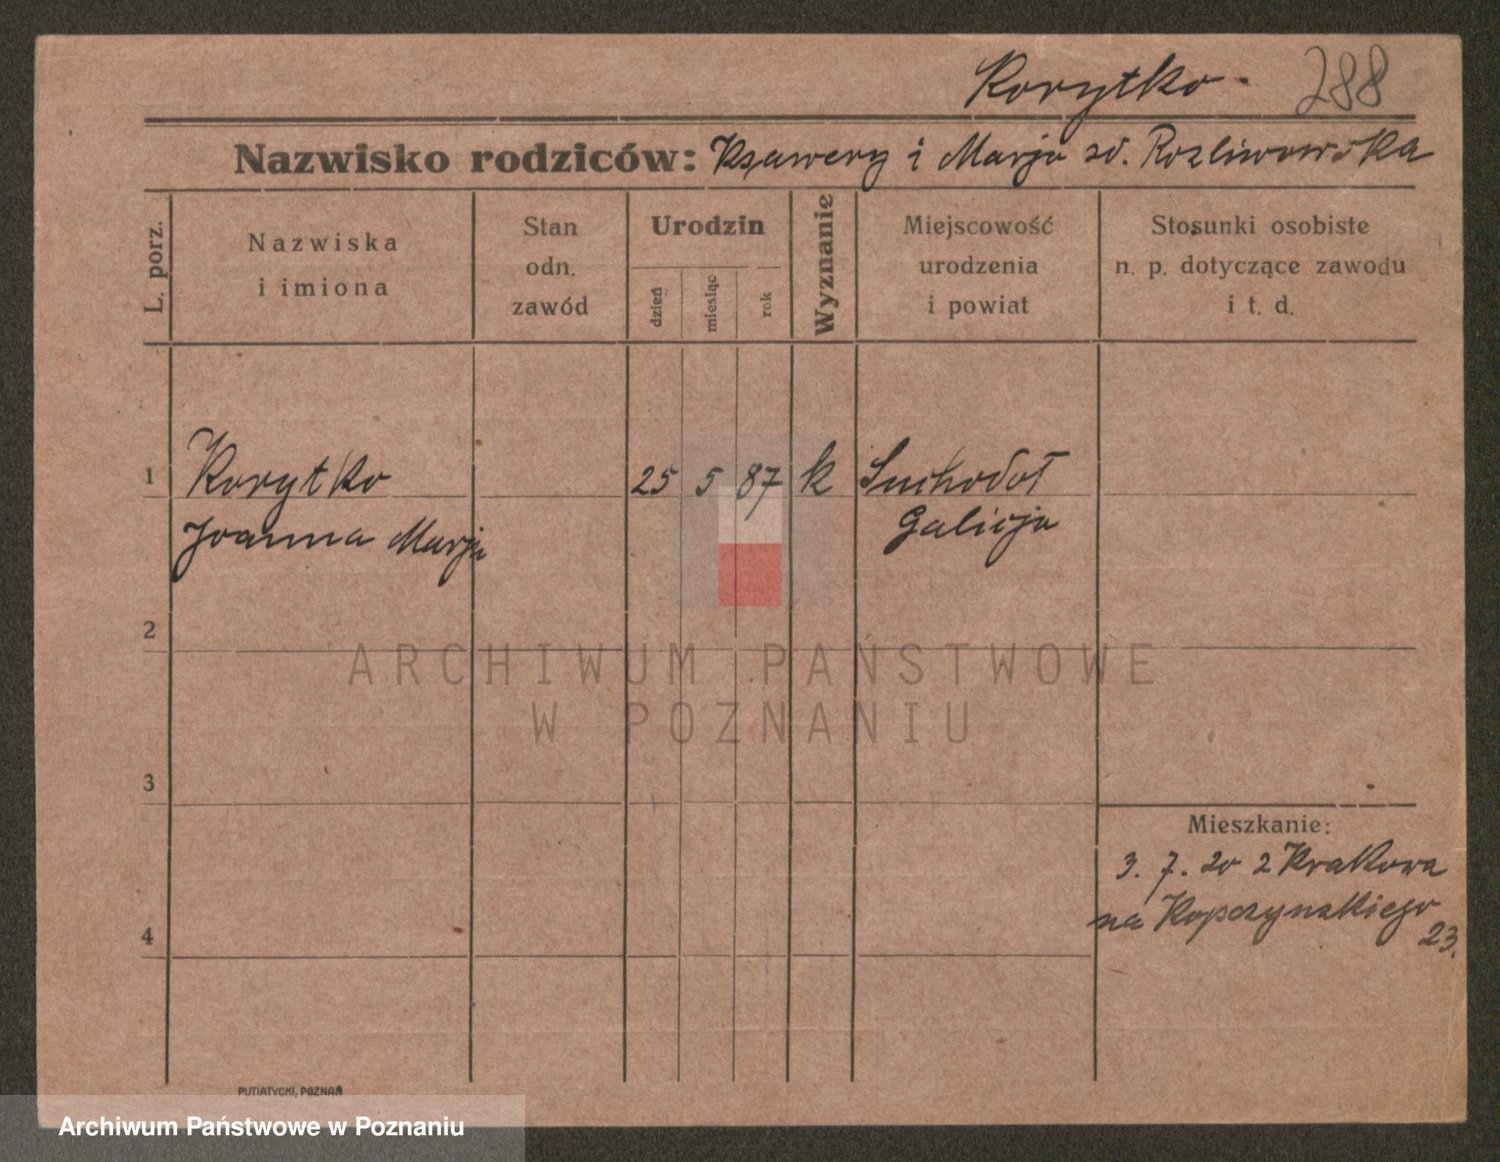 Korytko 288
Nazwisko rodziców: Ksawery i Marja zd. Rozliwowska
L. porz.
Nazwiska
i imiona
Stan
odn.
zawód
Urodzin
dzień
miesiąc
rok
Wyznanie
Miejscowość
urodzenia
i powiat
Stosunki osobiste
n. p. dotyczące zawodu
i t. d.
1 Korytko 25 5 87 k Suchodoł
Joanna Marja Galicja
2
ARCHIWUM PAŃSTWOWE
W POZNANIU
3
Mieszkanie:
3. 7. 20 z Krakowa
na Kopczynskiego
23.
4
PUTIATYCKI, POZNAŃ
Archiwum Państwowe w Poznaniu